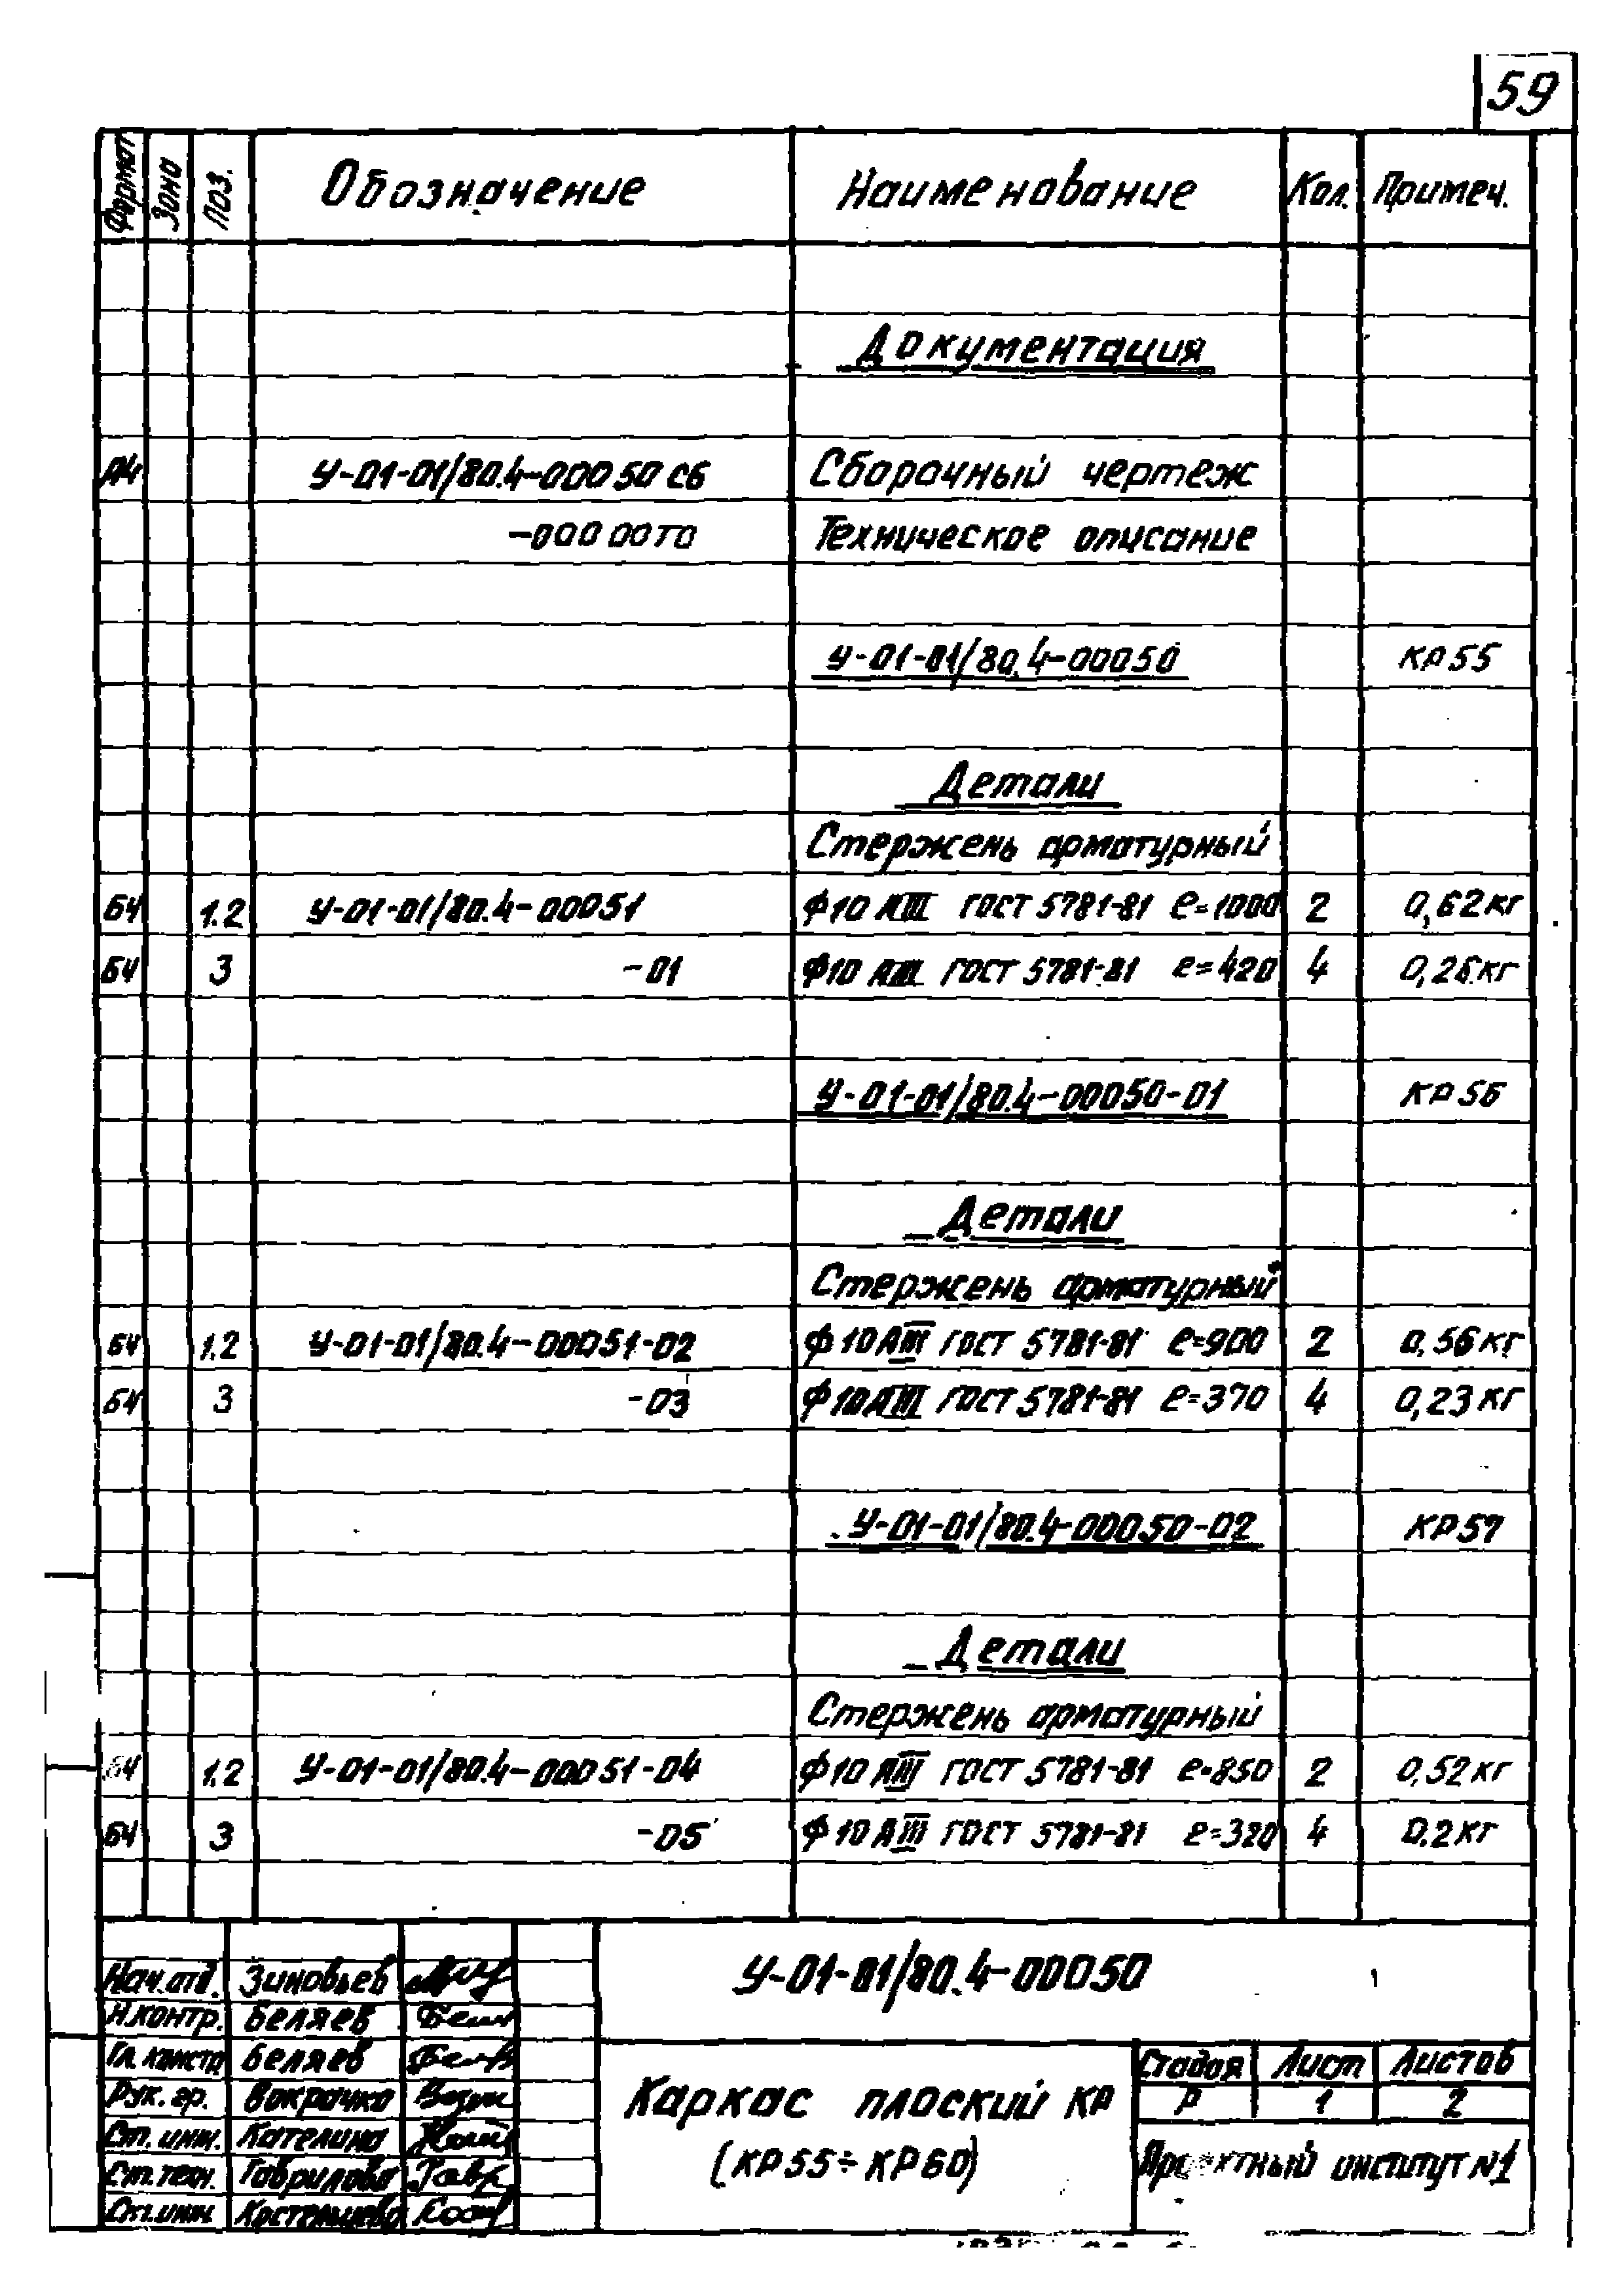 59
Формат Зона Поз. Обозначение Наименование Кол. Примеч.
Документация
А4 У-01-01/80.4-00050 СБ Сборочный чертеж
-00000ТО Техническое описание
У-01-01/80.4-00050 КР55
Детали
Стержень арматурный
БЧ 1.2 У-01-01/80.4-00051 Ф10 АIII ГОСТ 5781-81 ℓ=1000 2 0,62кг
БЧ 3 -01 Ф10 АIII ГОСТ 5781-81 ℓ=420 4 0,26кг
У-01-01/80.4-00050-01 КР56
Детали
Стержень арматурный
БЧ 1.2 У-01-01/80.4-00051-02 Ф10 АIII ГОСТ 5781-81 ℓ=900 2 0,56кг
БЧ 3 -03 Ф10 АIII ГОСТ 5781-81 ℓ=370 4 0,23кг
У-01-01/80.4-00050-02 КР57
Детали
Стержень арматурный
БЧ 1.2 У-01-01/80.4-00051-04 Ф10 АIII ГОСТ 5781-81 ℓ=850 2 0,52кг
БЧ 3 -05 Ф10 АIII ГОСТ 5781-81 ℓ=320 4 0.2кг
У-01-01/80.4-00050
Нач.отд. Зиновьев
Н.контр. Беляев
Гл. констр Беляев
Рук. гр. Вокрачко
Ст. инж. Кателина
Ст.техн. Гаврилова
Ст.инж.
Каркас плоский КР
(КР55÷КР60)
Стадия Лист Листов
Р 1 2
Проектный институт №1